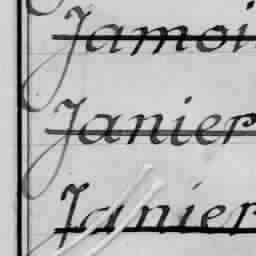 Jamoi
Janier
Janier